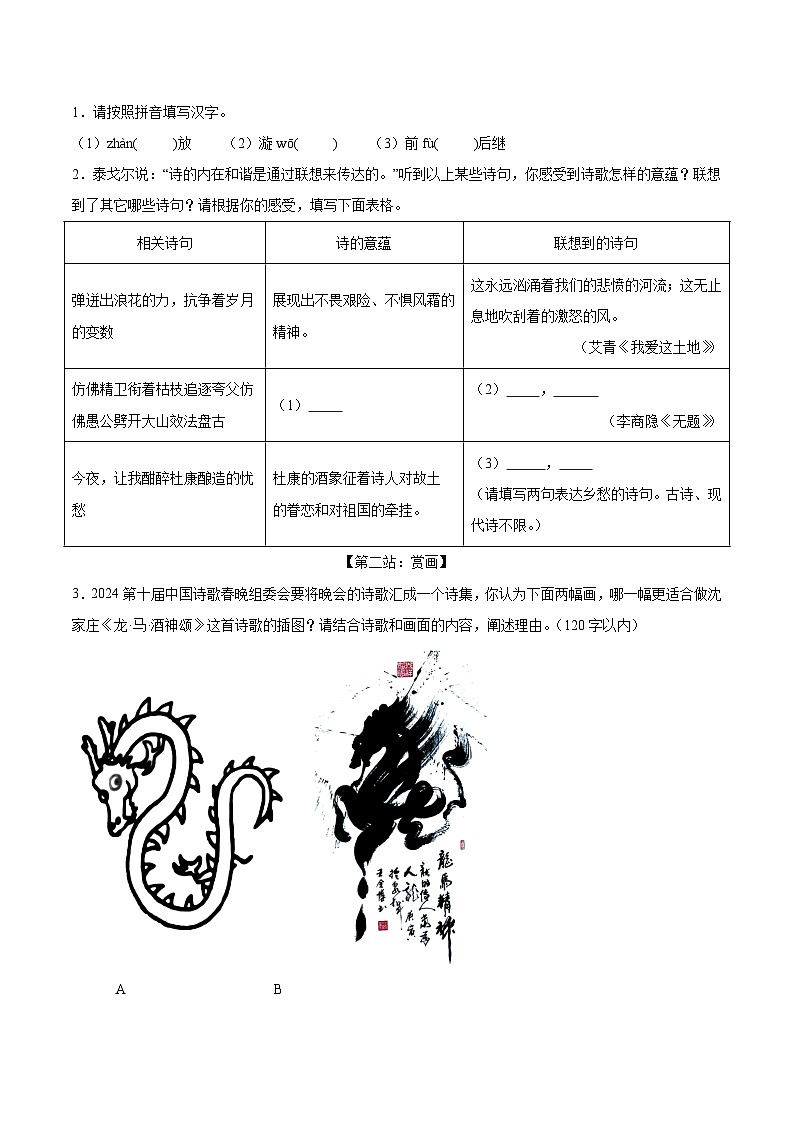 1．请按照拼音填写汉字。
（1）zhàn(　　)放　　（2）漩 wō(　　)　　（3）前 fù(　　)后继
2．泰戈尔说：“诗的内在和谐是通过联想来传达的。”听到以上某些诗句，你感受到诗歌怎样的意蕴？联想
到了其它哪些诗句？请根据你的感受，填写下面表格。
相关诗句　诗的意蕴　联想到的诗句
弹迸出浪花的力，抗争着岁月
的变数
展现出不畏艰险、不惧风霜的
精神。
这永远汹涌着我们的悲愤的河流；这无止
息地吹刮着的激怒的风。
（艾青《我爱这土地》）
仿佛精卫衔着枯枝追逐夸父仿
佛愚公劈开大山效法盘古
（1）_____
（2）_____，______
（李商隐《无题》）
今夜，让我酣醉杜康酿造的忧
愁
杜康的酒象征着诗人对故土
的眷恋和对祖国的牵挂。
（3）______，_____
（请填写两句表达乡愁的诗句。古诗、现
代诗不限。）
【第二站：赏画】
3．2024 第十届中国诗歌春晚组委会要将晚会的诗歌汇成一个诗集，你认为下面两幅画，哪一幅更适合做沈
家庄《龙·马·酒神颂》这首诗歌的插图？请结合诗歌和画面的内容，阐述理由。（120 字以内）
龍馬精神
A　B